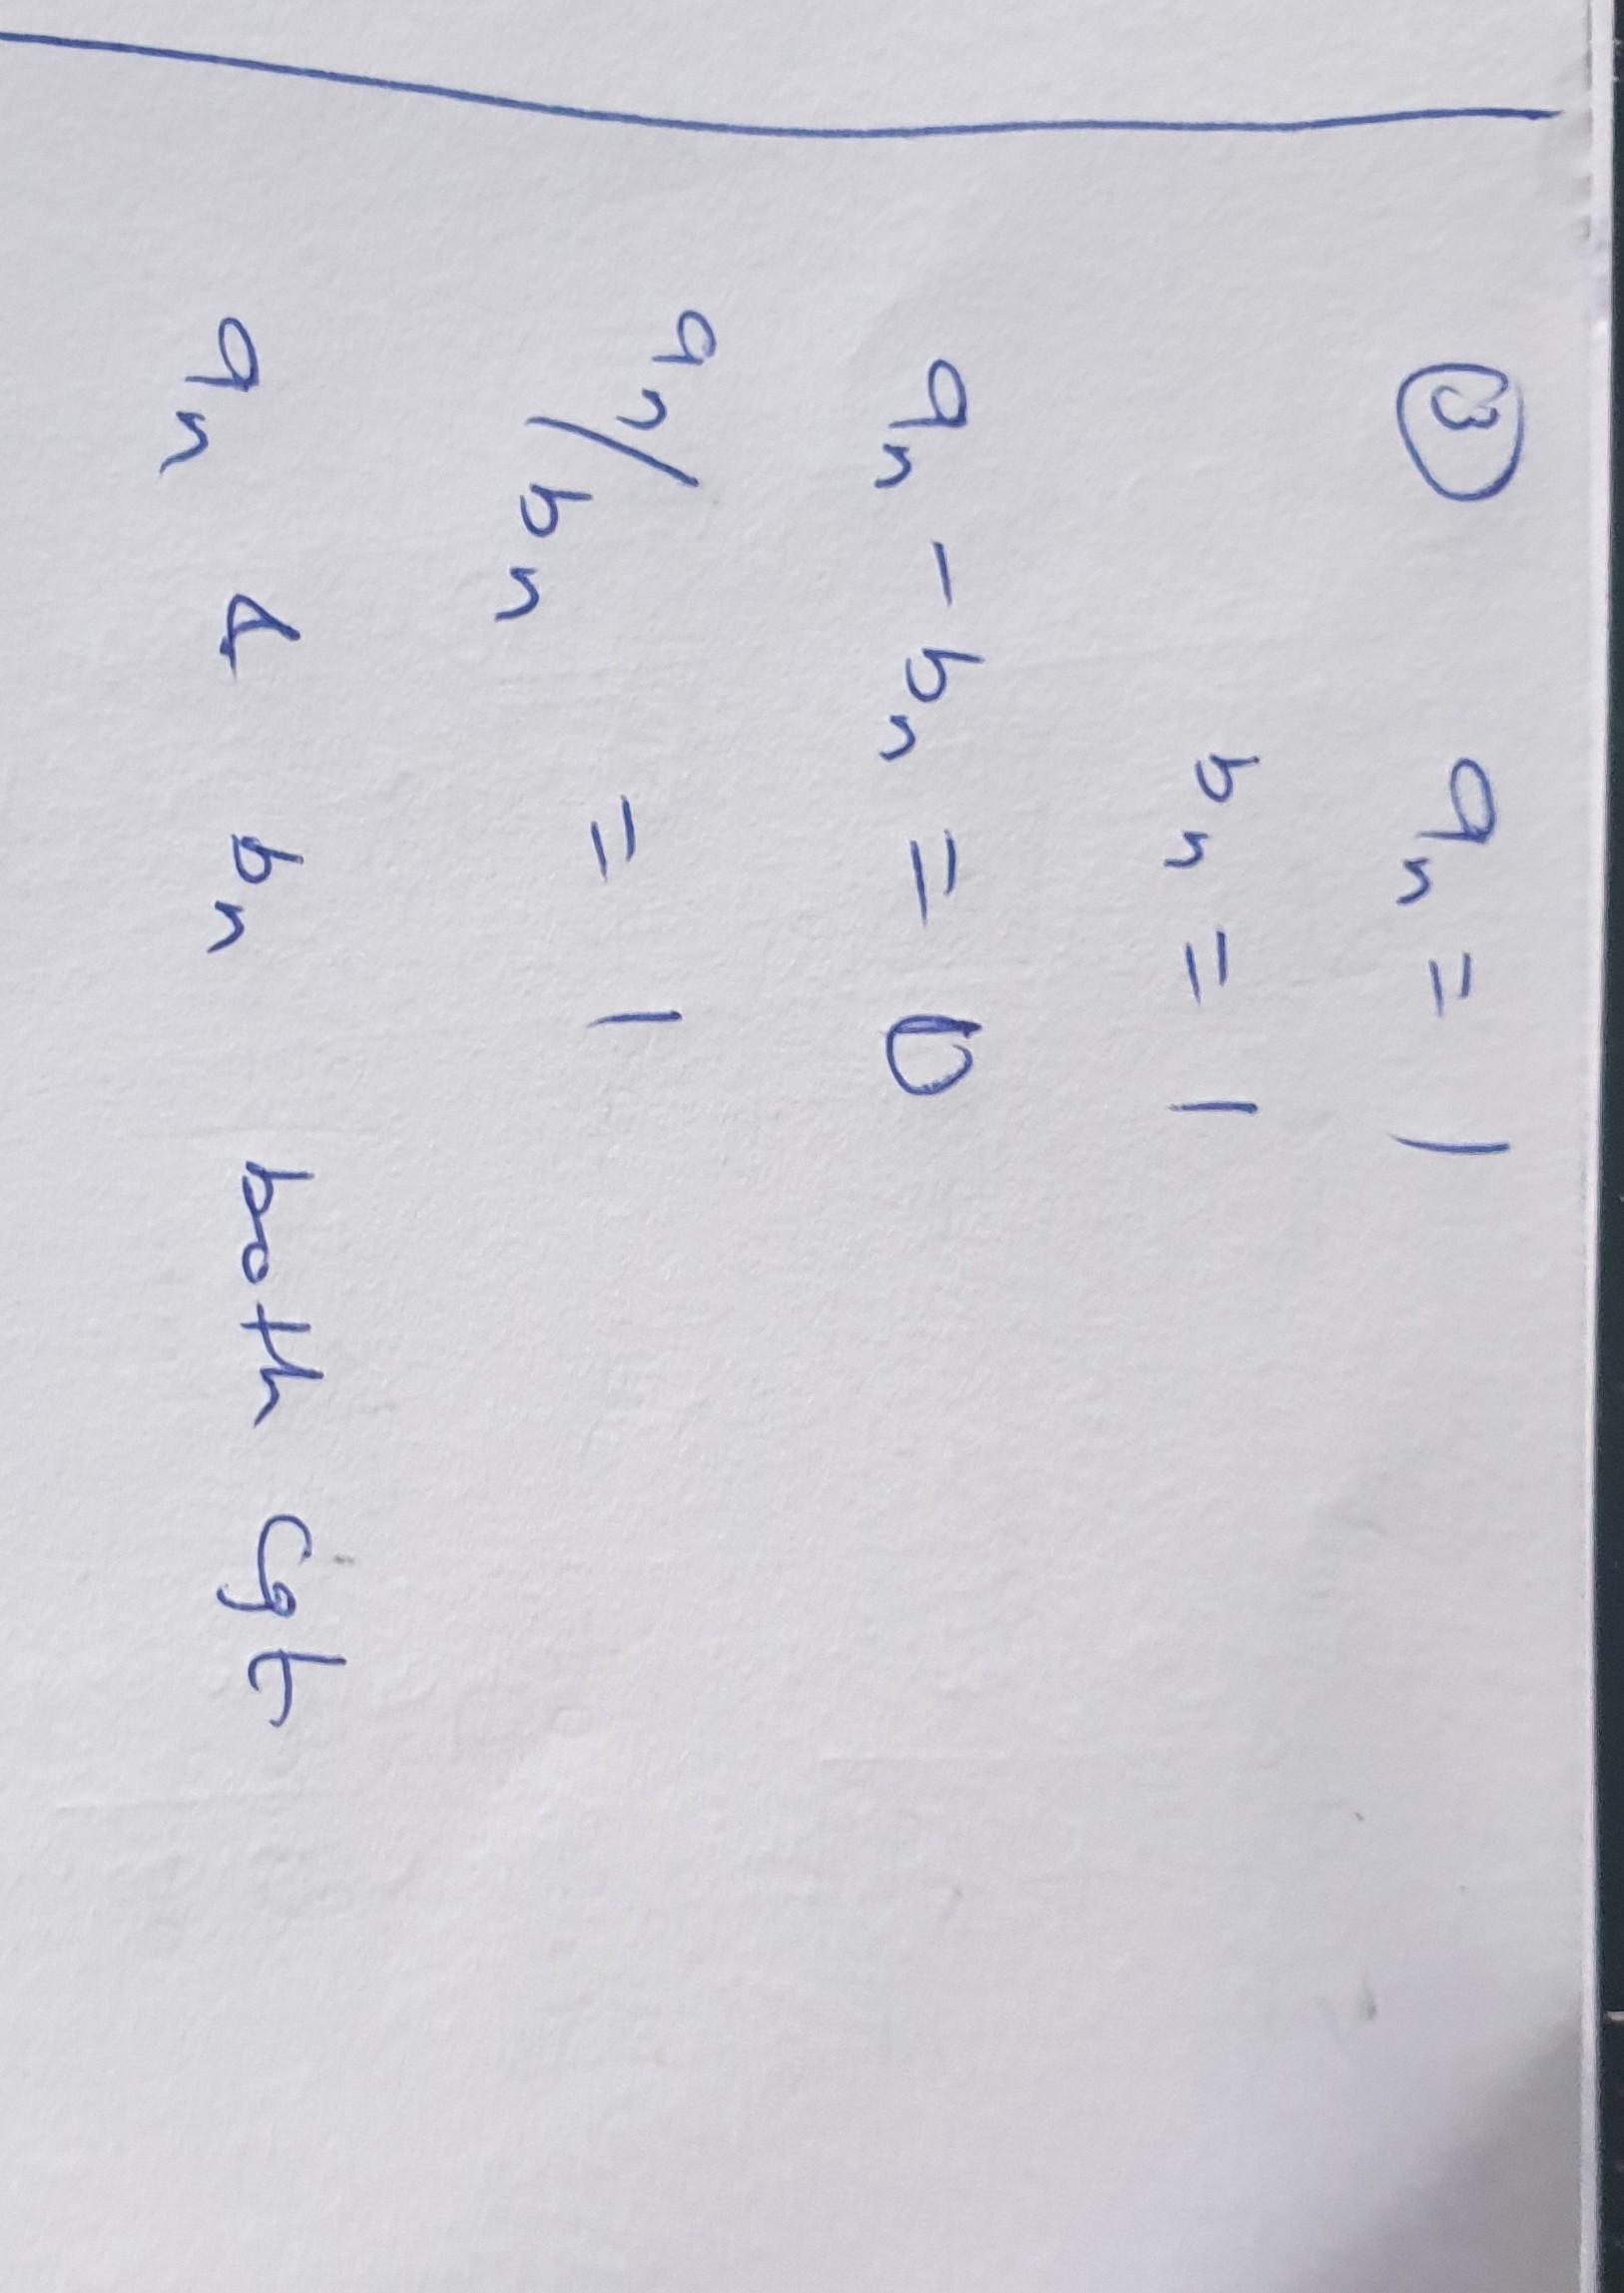 ③ aₙ = 1
bₙ = 1
aₙ - bₙ = 0
aₙ/bₙ = 1
aₙ & bₙ both cgt